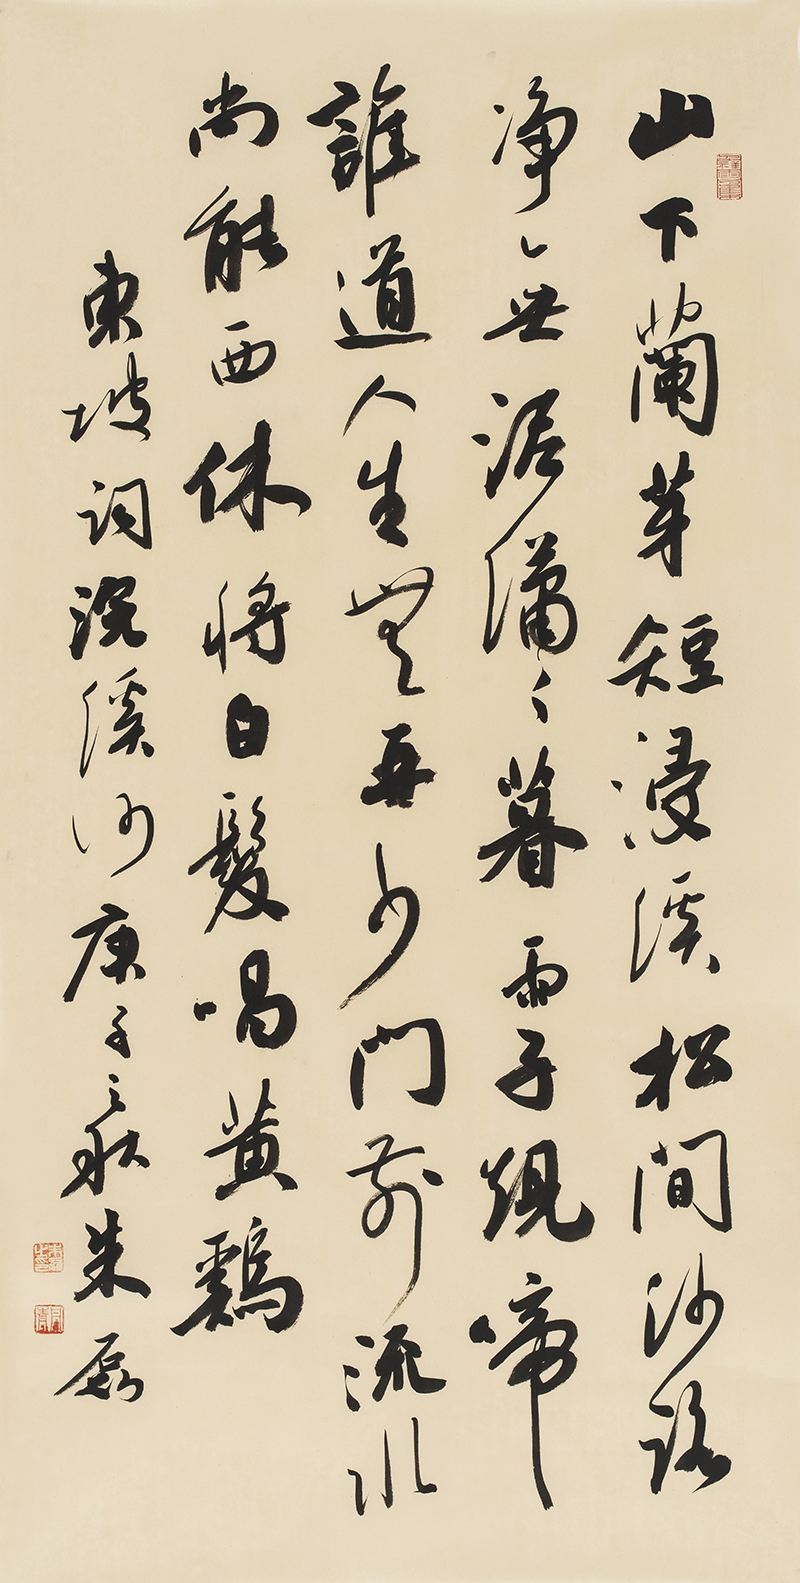 山下蘭芽短浸溪松間沙路
净無泥瀟〻暮雨子規啼
誰道人生無再少門前流水
尚能西休將白髮唱黄鷄
東坡詞浣溪沙庚子之秋朱磊